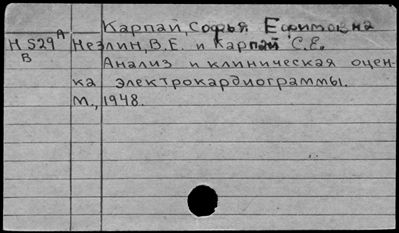 Карпай, Софья Ефимовна
Н 529 А Незлин, В.Е. и Карпай С.Е.
В Анализ и клиническая оцен-
ка электрокардиограммы.
М., 1948.